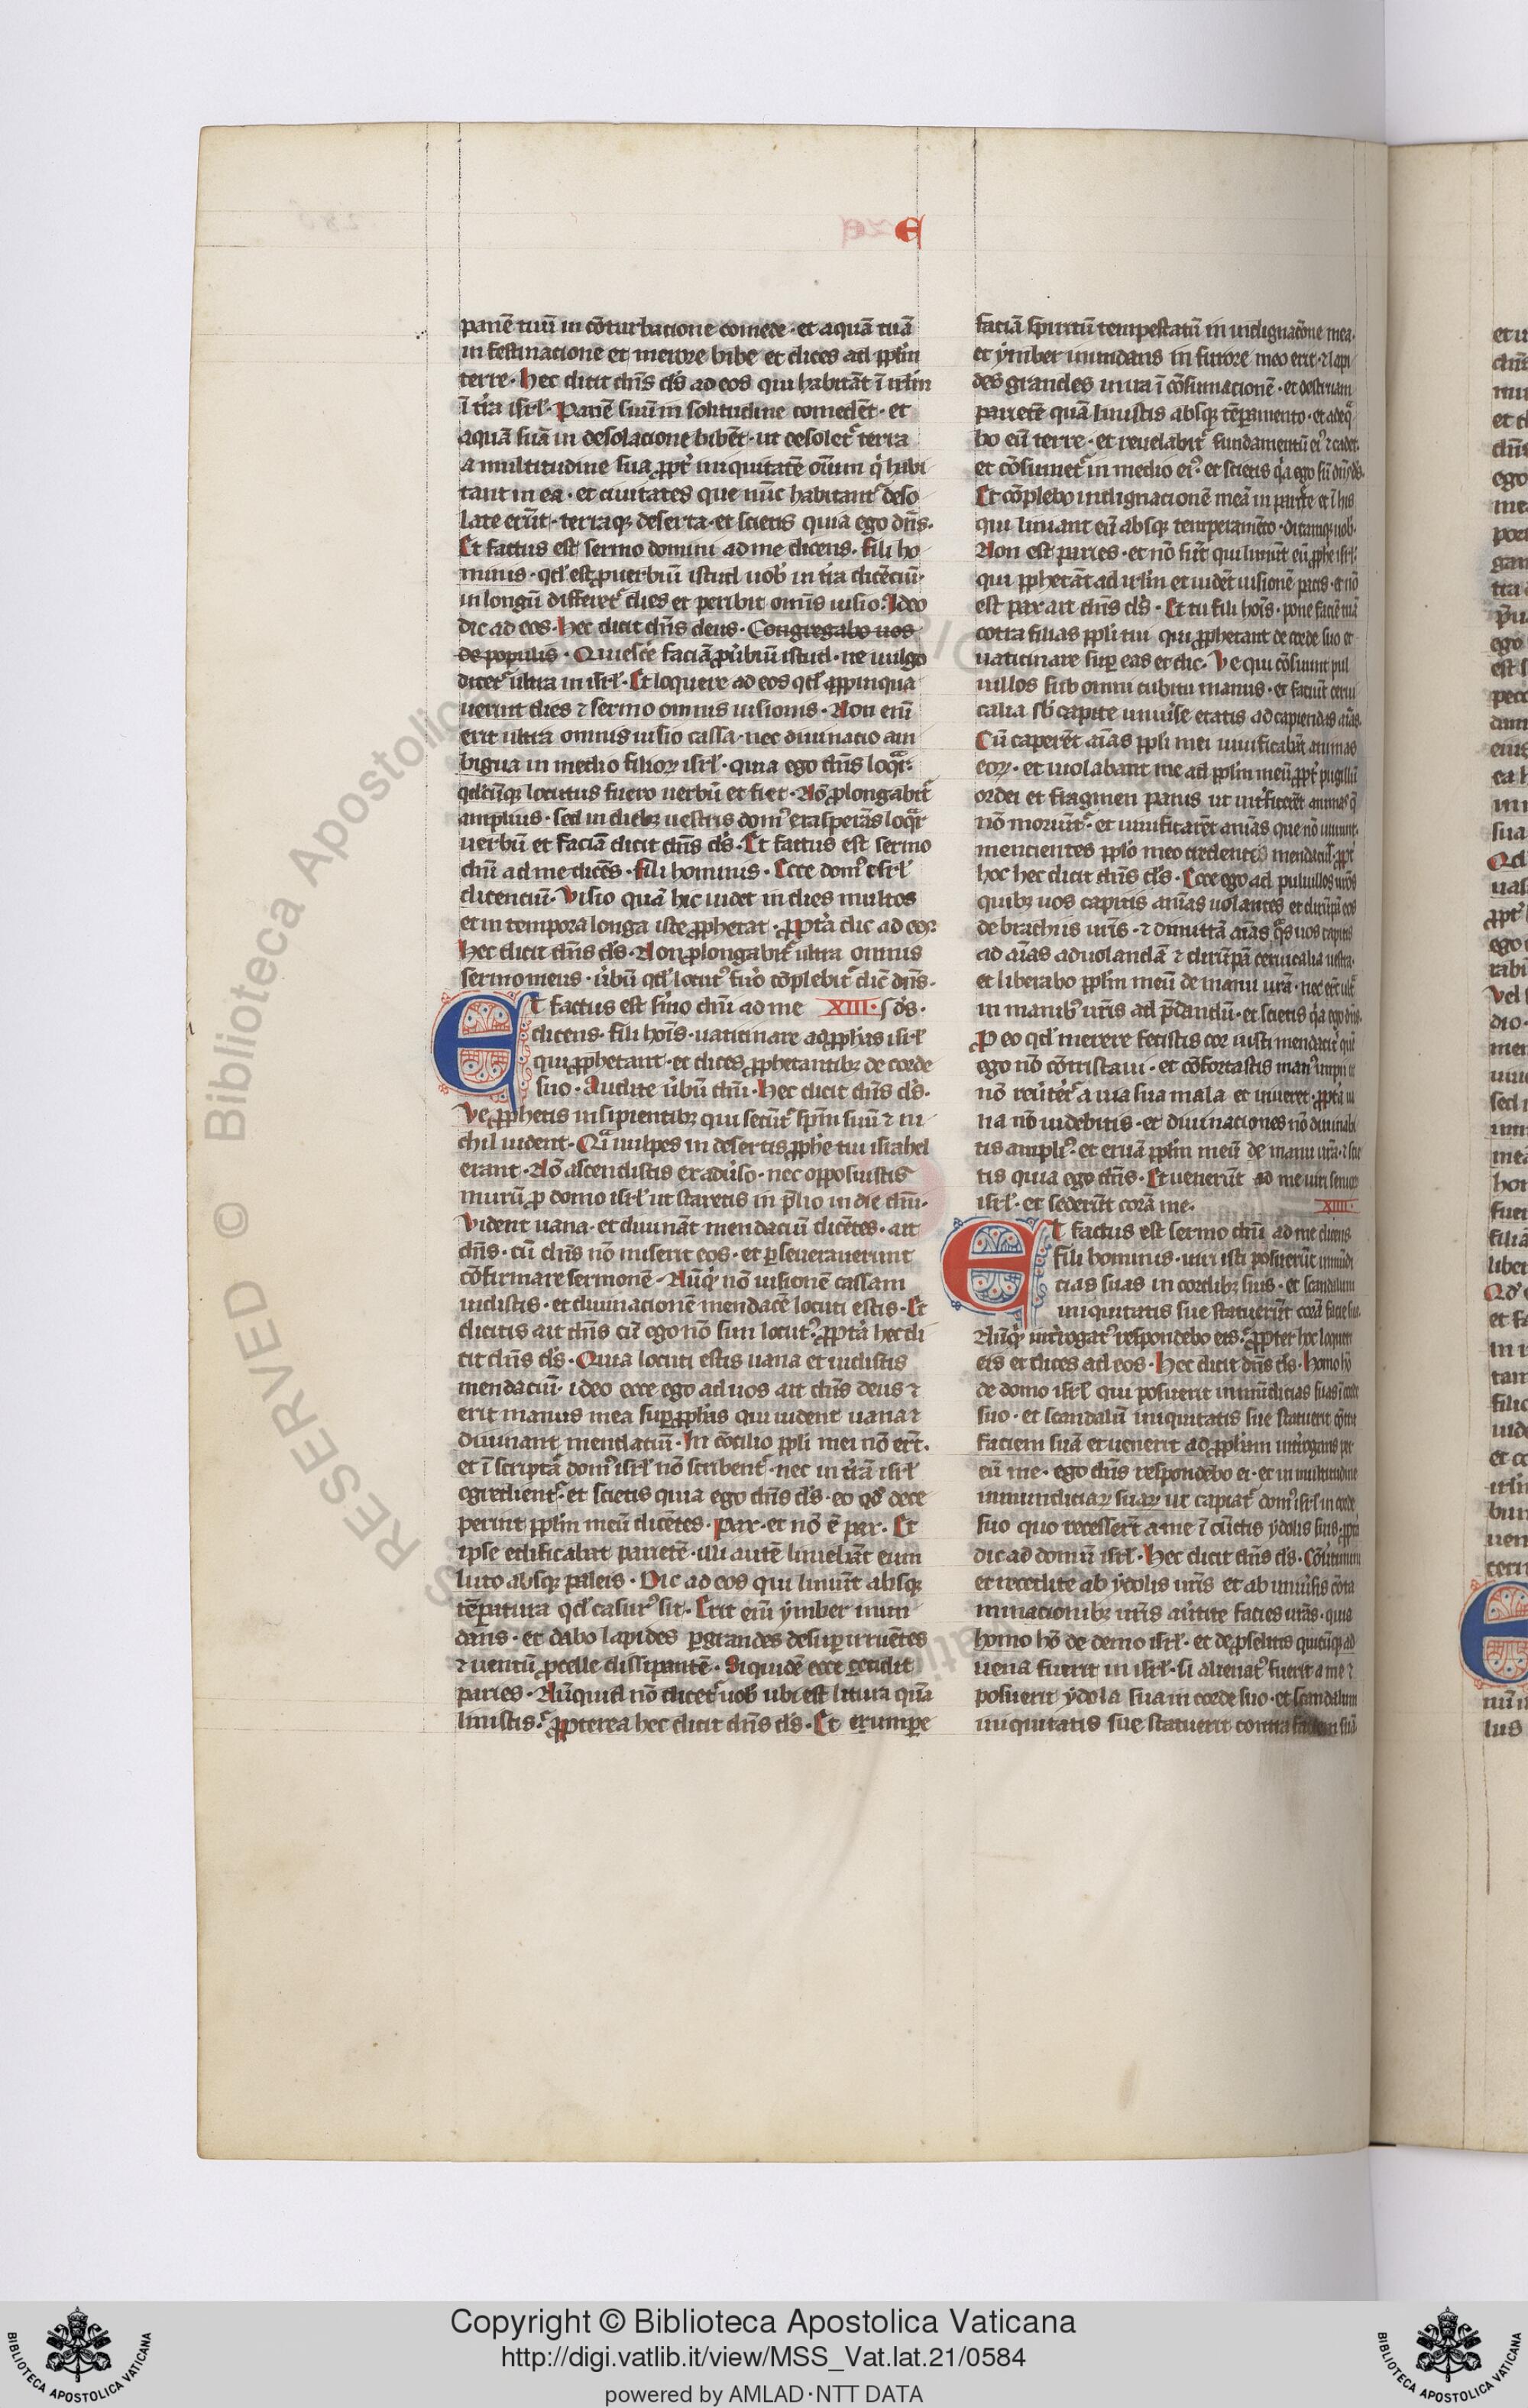 E
panē tuū in cōturbacione comede · et aquā tuā
in festinacione et merore bibe et dices ad ppl̄m
terre · Hec dicit dn̄s ds̄ ad eos qui habitāt ī irl̄m
ī t̄ra isrl̄ · Panē suū in solitudine comedēt · et
aquā suā in desolacione bibēt · ut desolet᷑ terra
a multitudine sua ꝓpt᷑ iniquitatē oīum q̇ habi
tant in ea · et ciuitates que nūc habitant᷑ deso
late erūt · terraqꝫ deserta · et scietis quia ego dn̄s ·
Et factus est sermo domini ad me dicens · fili ho
minis · qd̄ est ꝓuerbiū istud uob̄ in t̄ra dicēciū ·
in longū differēt᷑ dies et peribit omīs uisio · Ideo
dic ad eos · Hec dicit dn̄s deus · Congregabo uos
de populis · Quiesce faciā ꝓūbiū istud · ne uulgo
dicet᷑ ultra in isrl̄ · Et loquere ad eos qd̄ appinqua
uerint dies ⁊ sermo omnis uisionis · Non enī
erit ultra omnis uisio cassa · nec diuinacio am
bigua in medio filioꝝ isrl̄ · quia ego dn̄s loq̄r ·
qd̄cūqꝫ locutus fuero uerbū et fiet · Nō ꝓlongabit᷑
amplius · sed in diebꝫ uestris domꝰ exasperās loq̄r
uerbū et faciā dicit dn̄s ds̄ · Et factus est sermo
dn̄i ad me dicēs · fili hominis · Ecce domꝰ isrl̄
dicenciū · Visio quā hic uidet in dies multos
et in tempora longa iste ꝓphetat · ꝓpt̄a dic ad eos
Hec dicit dn̄s ds̄ · Non ꝓlongabit᷑ ultra omnis
sermo meus · ūbū qd̄ locutꝰ fuo᷑ cōplebit᷑ dic̄ dn̄s ·
Et factus est s̄mo dn̄i ad me XIII ·
dicens · fili hoīs · uaticinare ad ꝓph̄as isrl̄
qui ꝓphetant · et dices ꝓphetantibꝫ de corde
suo · Audite ūbū dn̄i · Hec dicit dn̄s ds̄ ·
Ve ꝓphetis insipientibꝫ qui secūt᷑ sp̄m suū ⁊ ni
chil uident · Qī uulpes in desertis ꝓphe tui israhel
erant · Nō ascendistis ex aduīso · nec opposuistis
murū ꝓ domo isrl̄ ut staretis in p̄lio in die dn̄i ·
Vident uana · et diuināt mendaciū dicētes · ait
dn̄s · cū dn̄s nō miserit eos · et ꝑseuerauerunt
cōfirmare sermonē · Nūq̇ nō uisionē cassam
uidistis · et diuinacionē mendacē locuti estis · Et
dicitis ait dn̄s cū ego nō sim locutꝰ · ꝓpt̄a hec di
cit dn̄s ds̄ · Quia locuti estis uana et uidistis
mendaciū · ideo ecce ego ad uos ait dn̄s deus ⁊
erit manus mea sup ꝓph̄as qui uident uana ⁊
diuinant mendaciū · In cōcilio ppl̄i mei nō er̄t ·
et ī scriptā domꝰ isrl̄ nō scribent᷑ · nec in t̄rā isrl̄
egredient᷑ · et scietis quia ego dn̄s ds̄ · eo qd̄ dece
perint ppl̄m meū dicētes · Pax · et nō ē pax · Et
ipse edificabat parietē · illi autē liniebāt eum
luto absqꝫ paleis · Dic ad eos qui liniūt absqꝫ
tēꝑatura qd̄ casurꝰ sit · Erit enī ymber inun
dans · et dabo lapides ꝑgrandes desuꝑ irruētes
⁊ uentū ꝓcelle dissipantē · Siquidē ecce cecidit
paries · Nūquid nō dicet᷑ uob̄ ubi est litura quā
linistis · ꝓpterea hec dicit dn̄s ds̄ · Et erumpe
faciā spiritū tempestatū in indignacōne mea ·
et ymber inundans in furore meo erit · ⁊ lapi
des grandes in ira ī cōsumacionē · et destruam
parietē quā linistis absqꝫ tēꝑamento · et adeq̄
bo eū terre · et reuelabit᷑ fundamentū eiꝰ ⁊ cadet ·
et cōsumet᷑ in medio eiꝰ · et scietis q̇a ego sū dn̄s ds̄
Et cōplebo indignacionē meā in pariete et ī his
qui liniunt eū absqꝫ temperamēto · dicamqꝫ uob̄ ·
Non est paries · et nō sūt qui liniūt eū ꝓphe isrl̄ ·
qui ꝓphetāt ad irl̄m et uidēt uisionē pacis · et nō
est pax ait dn̄s ds̄ · Et tu fili hoīs · pone faciē tuā
cotra filias ppl̄i tui qui ꝓphetant de corde suo et
uaticinare suꝑ eas et dic · Ve qui cōsuunt pul
uillos sub omni cubitu manus · et faciūt cerui
calia sb̄ capite uniūse etatis ad capiendas aīas ·
Cū caperēt aīas ppl̄i mei uiuificabāt animas
eoꝝ · et uiolabant me ad ppl̄m meū ꝓpt᷑ pugillū
ordei et fragmen panis ut int᷑ficerēt animas q̄
nō moriūt᷑ · et uiuificarēt aīas que nō uiuunt ·
mencientes pplō meo credenti mendaciis · ꝓpt᷑
hoc hec dicit dn̄s ds̄ · Ecce ego ad puluillos ur̄os
quibꝫ uos capitis aīas uolantes et dirūpā eos
de brachiis ur̄is · ⁊ dimittā aīas q̄s uos capitis
ad aīas aduolandā ⁊ dirūpā ceruicalia uestra ·
et liberabo ppl̄m meū de manu ur̄a · nec erūt ult᷑
in manibꝰ ur̄is ad p̄dandū · et scietis q̇a ego dn̄s ·
P eo qd̄ merere fecistis cor iusti mendacit᷑ quē
ego nō cōtristaui · et cōfortastis manꝰ impii ut
nō reūtet᷑ a uia sua mala et uiueret · ꝓpt̄a ua
na nō uidebitis · et diuinaciones nō diuinabi
tis ampliꝰ · et eruā ppl̄m meū de manu ur̄a · ⁊ scie
tis quia ego dn̄s · Et uenerūt ad me uiri senior
isrl̄ · et sederūt corā me · XIIII ·
Et factus est sermo dn̄i ad me dicens
fili hominis · uiri isti posuerūt inmūdi
cias suas in cordibꝫ suis · et scandalum
iniquitatis sue statuerūt corā facie sua ·
Nūq̇ int᷑rogatꝰ respondebo eis · ꝓpter hoc loquere
eis et dices ad eos · Hec dicit dn̄s ds̄ · Homo hō
de domo isrl̄ qui posuerit inmūdicias suas ī corde
suo · et scandalū iniquitatis sue statuerit cōtra
faciem suā et uenerit ad ꝓphtam int᷑rogans ꝑ
eū me · ego dn̄s respondebo ei · et in multitudine
inmundiciaꝝ suaꝝ ut capiat᷑ domꝰ isrl̄ in corde
suo quo recesserūt a me ī cūctis ydolis suis · ꝓpt̄a
dic ad domū isrl̄ · Hec dicit dn̄s ds̄ · Cōūtimini
et recedite ab ydolis ur̄is et ab uniūsis cōta
minacionibꝫ ur̄is aūtite facies ur̄as · quia
homo hō de domo isrl̄ · et de ꝓselitis quicūqꝫ ad
uena fuerit in isrl̄ · si alienatꝰ fuerit a me ⁊
posuerit ydola sua in corde suo · et scandalum
iniquitatis sue statuerit contra faciem suā
Copyright © Biblioteca Apostolica Vaticana
http://digi.vatlib.it/view/MSS_Vat.lat.21/0584
powered by AMLAD·NTT DATA